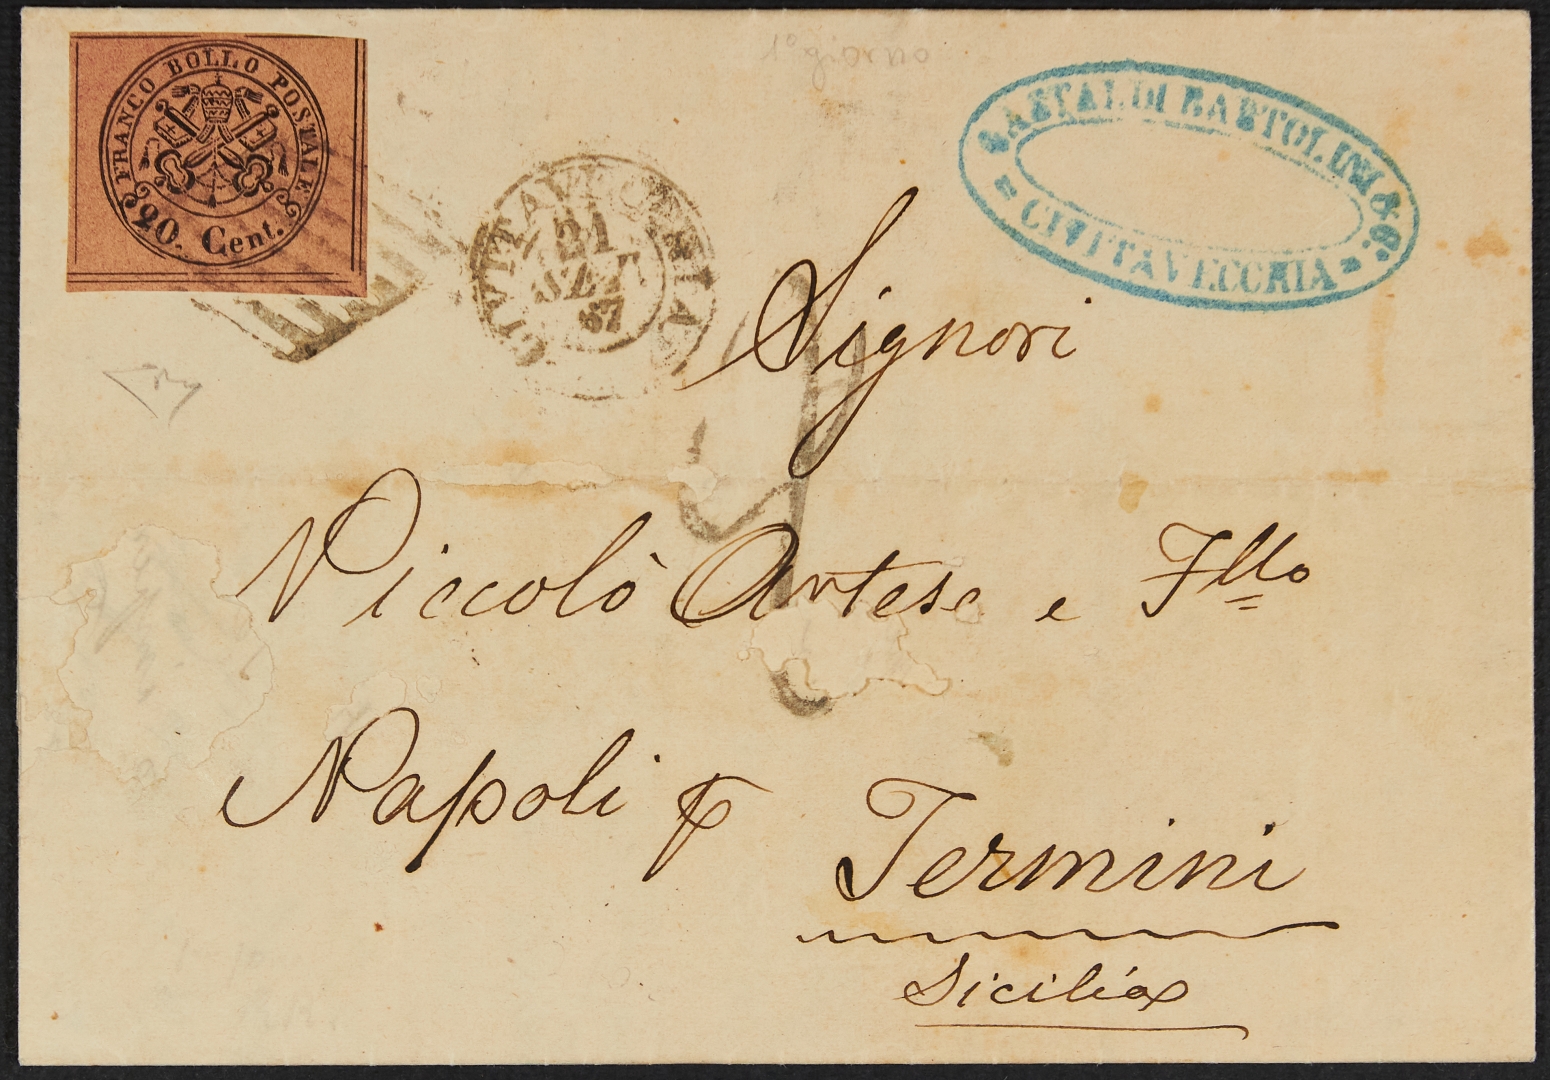 FRANCO BOLLO POSTALE
20. Cent.
1° giorno
CIVITAVECCHIA
21
SET
67
GASTALDI BARTOLINI & C.
= CIVITAVECCHIA =
Signori
Niccolò Artese e Fllo
Napoli p Termini
Sicilia